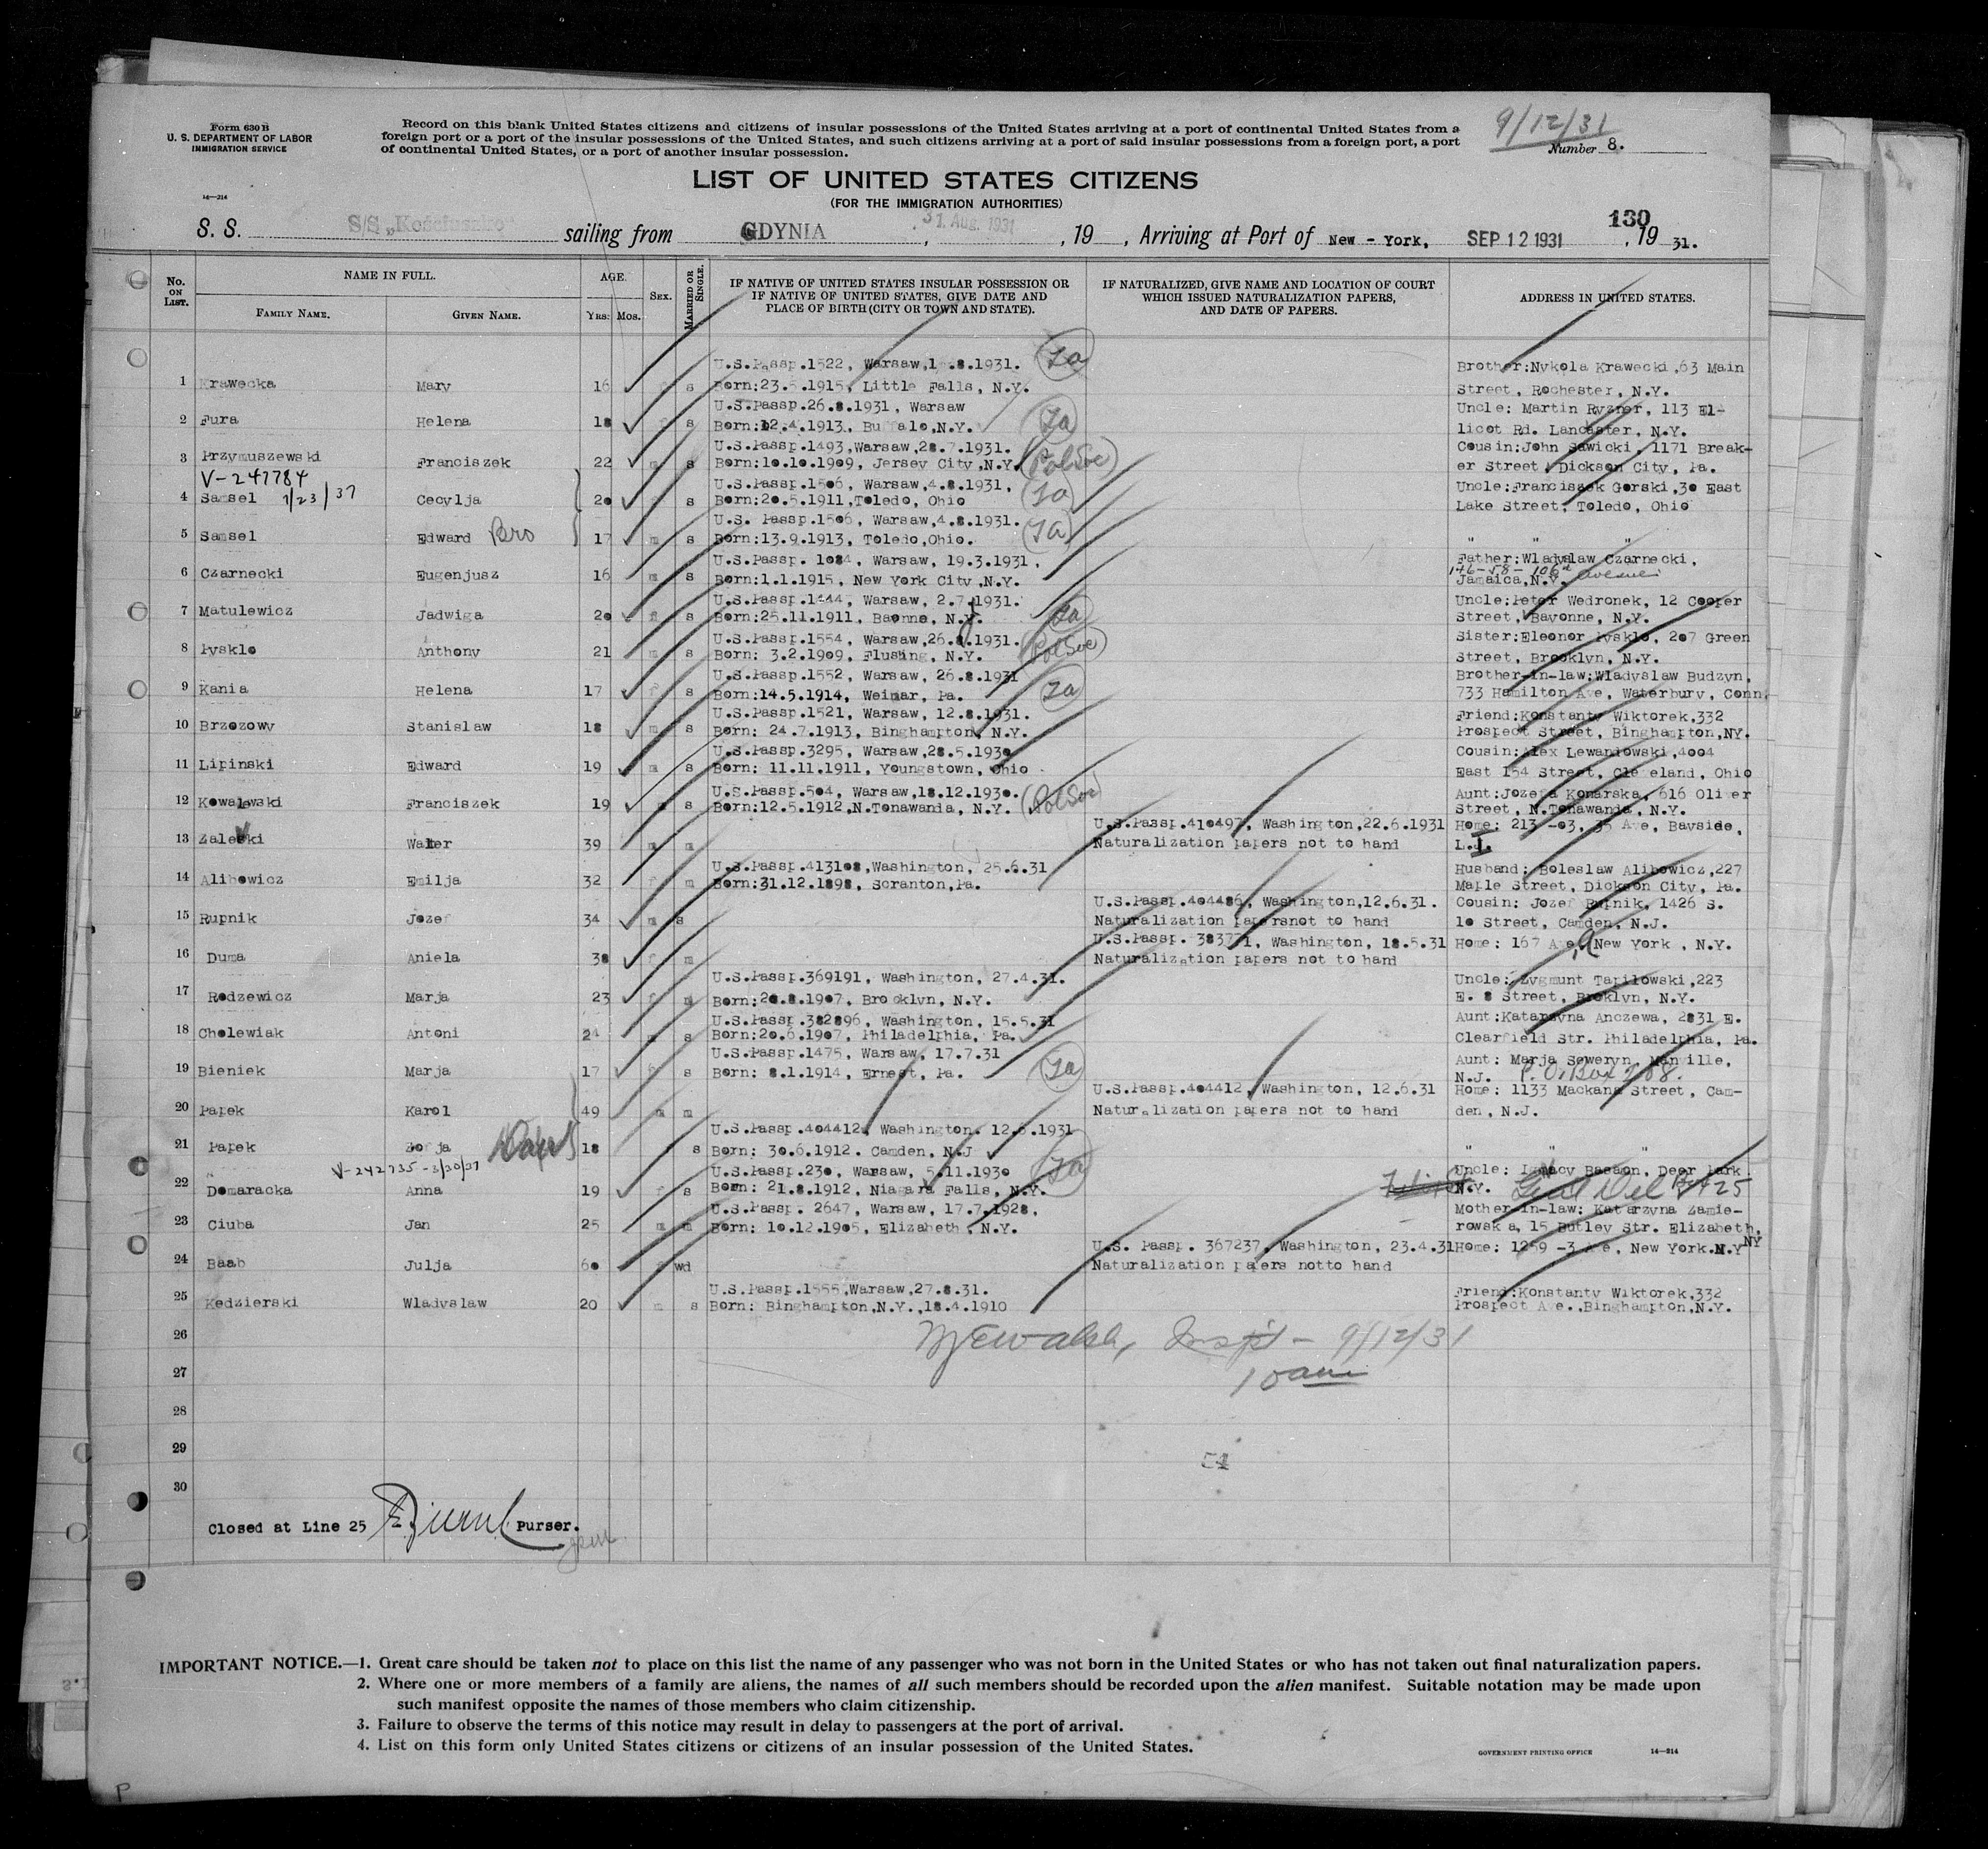 Form 630 B
U. S. DEPARTMENT OF LABOR
IMMIGRATION SERVICE
14—214
Record on this blank United States citizens and citizens of insular possessions of the United States arriving at a port of continental United States from a
foreign port or a port of the insular possessions of the United States, and such citizens arriving at a port of said insular possessions from a foreign port, a port
of continental United States, or a port of another insular possession.
9/12/31
Number 8.
LIST OF UNITED STATES CITIZENS
(FOR THE IMMIGRATION AUTHORITIES)
130
S. S. S/S „Kościuszko" sailing from GDYNIA, 31. Aug. 1931, 19 , Arriving at Port of New - York, SEP 12 1931, 19 31.
No. ON LIST.
NAME IN FULL.
FAMILY NAME.
GIVEN NAME.
AGE.
YRS. MOS.
SEX.
MARRIED OR SINGLE.
IF NATIVE OF UNITED STATES INSULAR POSSESSION OR
IF NATIVE OF UNITED STATES, GIVE DATE AND
PLACE OF BIRTH (CITY OR TOWN AND STATE).
IF NATURALIZED, GIVE NAME AND LOCATION OF COURT
WHICH ISSUED NATURALIZATION PAPERS,
AND DATE OF PAPERS.
ADDRESS IN UNITED STATES.
U.S.Passp.1522, Warsaw, 8.1931. Brother:Nykola Krawecki,63 Main
1 Krawecka Mary 16 f s Born:23.5.1915, Little Falls, N.Y. Street, Rochester, N.Y.
U.S.Passp.26.8.1931, Warsaw Uncle: Martin Ryzner, 113 El-
2 Fura Helena 18 f s Born:12.4.1913. Buffalo,N.Y. licot Rd. Lancaster, N.Y.
U.S.Passp.1493,Warsaw,28.7.1931. Cousin:John Sawicki, 1171 Break-
3 Przymuszewski Franciszek 22 m s Born:10.10.1909, Jersey City,N.Y. (PolSoc) er Street, Dickson City, Pa.
V-247784
U.S.Passp.1506, Warsaw,4.8.1931, Uncle:Franciszek Gorski,30 East
4 Samsel 7/23/37 Cecylja 20 f s Born:20.5.1911,Toledo, Ohio Lake Street, Toledo, Ohio
U.S. Passp.1506, Warsaw,4.8.1931.
5 Samsel Edward Bro 17 m s Born:13.9.1913, Toledo,Ohio. " " "
U.S.Passp. 1084, Warsaw, 19.3.1931, Father:Wladyslaw Czarnecki,
146-58-106 Avenue
6 Czarnecki Eugenjusz 16 m s Born:1.1.1915, New York City,N.Y. Jamaica,N.Y.
U.S.Passp.1444, Warsaw, 2.7.1931. Uncle:Peter Wedronek, 12 Cooper
7 Matulewicz Jadwiga 20 f s Born:25.11.1911, Bayonne, N.Y. Street, Bayonne, N.Y.
U.S.Passp.1554, Warsaw,26.8.1931. Sister:Eleonor Pysklo, 207 Green
8 Pysklo Anthony 21 m s Born: 3.2.1909, Flushing, N.Y. (PolSoc) Street, Brooklyn, N.Y.
U.S.Passp.1552, Warsaw, 26.8.1931 Brother-in-law:Wladyslaw Budzyn,
9 Kania Helena 17 f s Born:14.5.1914, Weimar, Pa. 733 Hamilton Ave, Waterbury, Conn.
U.S.Passp.1521, Warsaw, 12.8.1931. Friend:Konstanty Wiktorek,332
10 Brzozowy Stanislaw 18 m s Born: 24.7.1913, Binghampton, N.Y. Prospect Street, Binghampton,NY.
U.S.Passp.3295, Warsaw,28.5.1930 Cousin:Alex Lewandowski,4004
11 Lipinski Edward 19 m s Born: 11.11.1911, Youngstown, Ohio East 154 Street, Cleveland, Ohio
U.S.Passp.504, Warsaw,18.12.1930. Aunt:Jozefa Konarska, 616 Oliver
12 Kowalewski Franciszek 19 m s Born:12.5.1912,N.Tonawanda, N.Y. (PolSoc) Street, N.Tonawanda, N.Y.
U.S.Passp.410497, Washington,22.6.1931 Home: 213 -03, 35 Ave, Bayside,
13 Zaleski Walter 39 m m Naturalization papers not to hand L.I.
U.S.Passp.413108,Washington, 25.6.31 Husband: Boleslaw Alibowicz,227
14 Alibowicz Emilja 32 f m Born:31.12.1898, Scranton,Pa. Maple Street, Dickson City, Pa.
U.S.Passp.404486, Washington,12.6.31. Cousin: Jozef Rupnik, 1426 S.
15 Rupnik Jozef 34 m s Naturalization papersnot to hand 10 Street, Camden, N.J.
U.S.Passp. 383771, Washington, 18.5.31 Home: 167 Ave, A New York , N.Y.
16 Duma Aniela 38 f m Naturalization papers not to hand
U.S.Passp.369191, Washington, 27.4.31. Uncle: Zygmunt Tapilowski,223
17 Rodzewicz Marja 23 f m Born:20.8.1907, Brooklyn, N.Y. E. 8 Street, Broklyn, N.Y.
U.S.Passp.382896, Washington, 15.5.31 Aunt:Katarzyna Anczewa, 2831 E.
18 Cholewiak Antoni 24 m s Born:20.6.1907, Philadelphia, Pa. Clearfield Str. Philadelphia, Pa.
U.S.Passp.1475, Warsaw, 17.7.31 Aunt: Marja Seweryn, Manville,
19 Bieniek Marja 17 f s Born: 8.1.1914, Ernest, Pa. N.J. P.O. Box 708.
U.S.Passp.404412, Washington, 12.6.31 Home: 1133 Mackana Street, Cam-
20 Papek Karol 49 m m Naturalization papers not to hand den, N.J.
U.S.Passp.404412, Washington. 12.6.1931
21 Papek Zofja 18 f s Born: 30.6.1912. Camden, N.J " " "
V-242735-3/30/37
U.S.Passp.230, Warsaw, 5.11.1930 Uncle: Ignacy Basaon, Deer Park
22 Domaracka Anna 19 f s Born: 21.8.1912, Niagara Falls, N.Y. N.Y. Genl Del
U.S.Passp. 2647, Warsaw, 17.7.1928, Mother-in-law: Katarzyna Zamie-
23 Ciuba Jan 25 m m Born: 10.12.1905, Elizabeth, N.Y. rowska, 15 Butley Str. Elizabeth, NY
U.S. Passp. 367237, Washington, 23.4.31 Home: 1259 -3 Ave, New York.N.Y
24 Baab Julja 60 f wd Naturalization papers notto hand
U.S.Passp.1555,Warsaw,27.8.31. Friend:Konstanty Wiktorek,332
25 Kedzierski Wladyslaw 20 m s Born: Binghampton,N.Y.,18.4.1910 Prospect Ave.,Binghampton,N.Y.
26 Walsh, Insp't - 9/12/31
27 10 am
28
29
30
Closed at Line 25 Purser.
IMPORTANT NOTICE.—1. Great care should be taken not to place on this list the name of any passenger who was not born in the United States or who has not taken out final naturalization papers.
2. Where one or more members of a family are aliens, the names of all such members should be recorded upon the alien manifest. Suitable notation may be made upon
such manifest opposite the names of those members who claim citizenship.
3. Failure to observe the terms of this notice may result in delay to passengers at the port of arrival.
4. List on this form only United States citizens or citizens of an insular possession of the United States.
GOVERNMENT PRINTING OFFICE 14—214
P